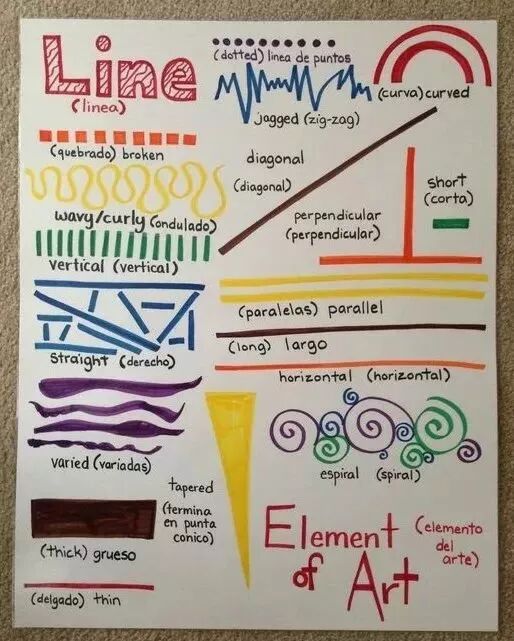 Line
(linea)
(dotted) linea de puntos
jagged (zig-zag)
(curva) curved
(quebrado) broken
wavy/curly (ondulado)
vertical (vertical)
diagonal
(diagonal)
perpendicular
(perpendicular)
short
(corta)
straight (derecho)
(paralelas) parallel
(long) largo
horizontal (horizontal)
varied (variadas)
tapered
(termina
en punta
conico)
espiral (spiral)
(thick) grueso
(delgado) thin
Element
of Art
(elemento
del
arte)